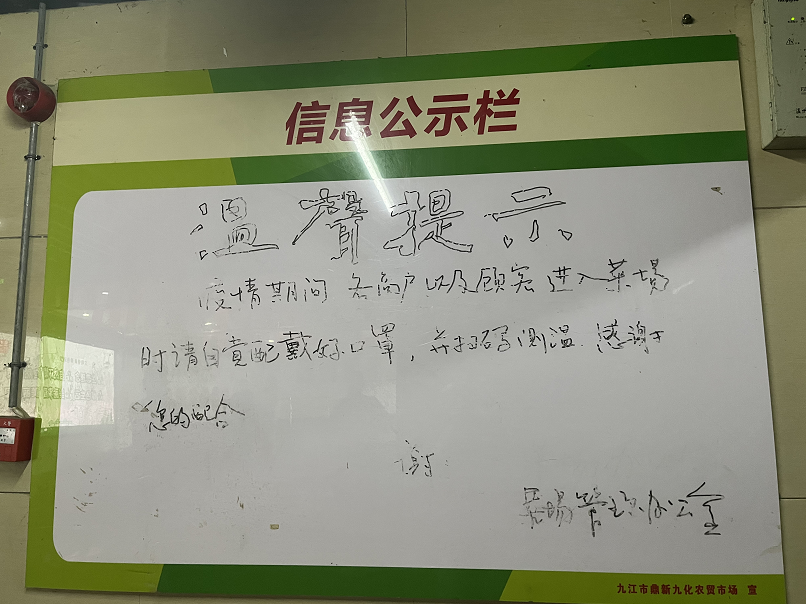 信息公示栏
温馨提示
疫情期间 各商户以及顾客进入菜场
时请自责配戴好口罩，并扫码测温.感谢
您的配合
谢
菜场管理办公室
九江市鼎新九化农贸市场 宣